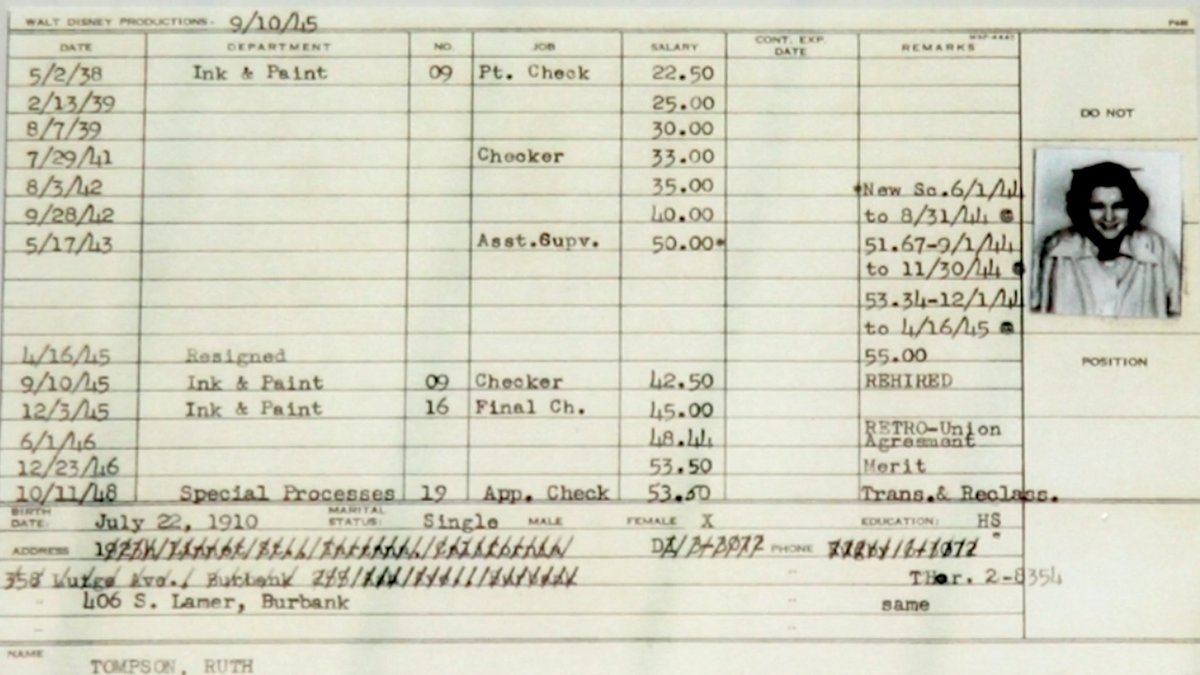 WALT DISNEY PRODUCTIONS- 9/10/45
DATE DEPARTMENT NO. JOB SALARY CONT. EXP. DATE REMARKS
5/2/38 Ink & Paint 09 Pt. Check 22.50
2/13/39 25.00
DO NOT
8/7/39 30.00
7/29/41 Checker 33.00
8/3/42 35.00 *New Sc.6/1/44
9/28/42 40.00 to 8/31/44 @
5/17/43 Asst.Supv. 50.00* 51.67-9/1/44
to 11/30/44 @
53.34-12/1/44
to 4/16/45 @
4/16/45 Resigned 55.00
POSITION
9/10/45 Ink & Paint 09 Checker 42.50 REHIRED
12/3/45 Ink & Paint 16 Final Ch. 45.00
6/1/46 48.44 RETRO-Union
Agreement
12/23/46 53.50 Merit
10/11/48 Special Processes 19 App. Check 53.50 Trans.& Reclass.
BIRTH DATE: July 22, 1910 MARITAL STATUS: Single MALE FEMALE X EDUCATION: HS
ADDRESS PHONE
358 Ave., Burbank 2-8354
406 S. Lamer, Burbank same
NAME
TOMPSON, RUTH